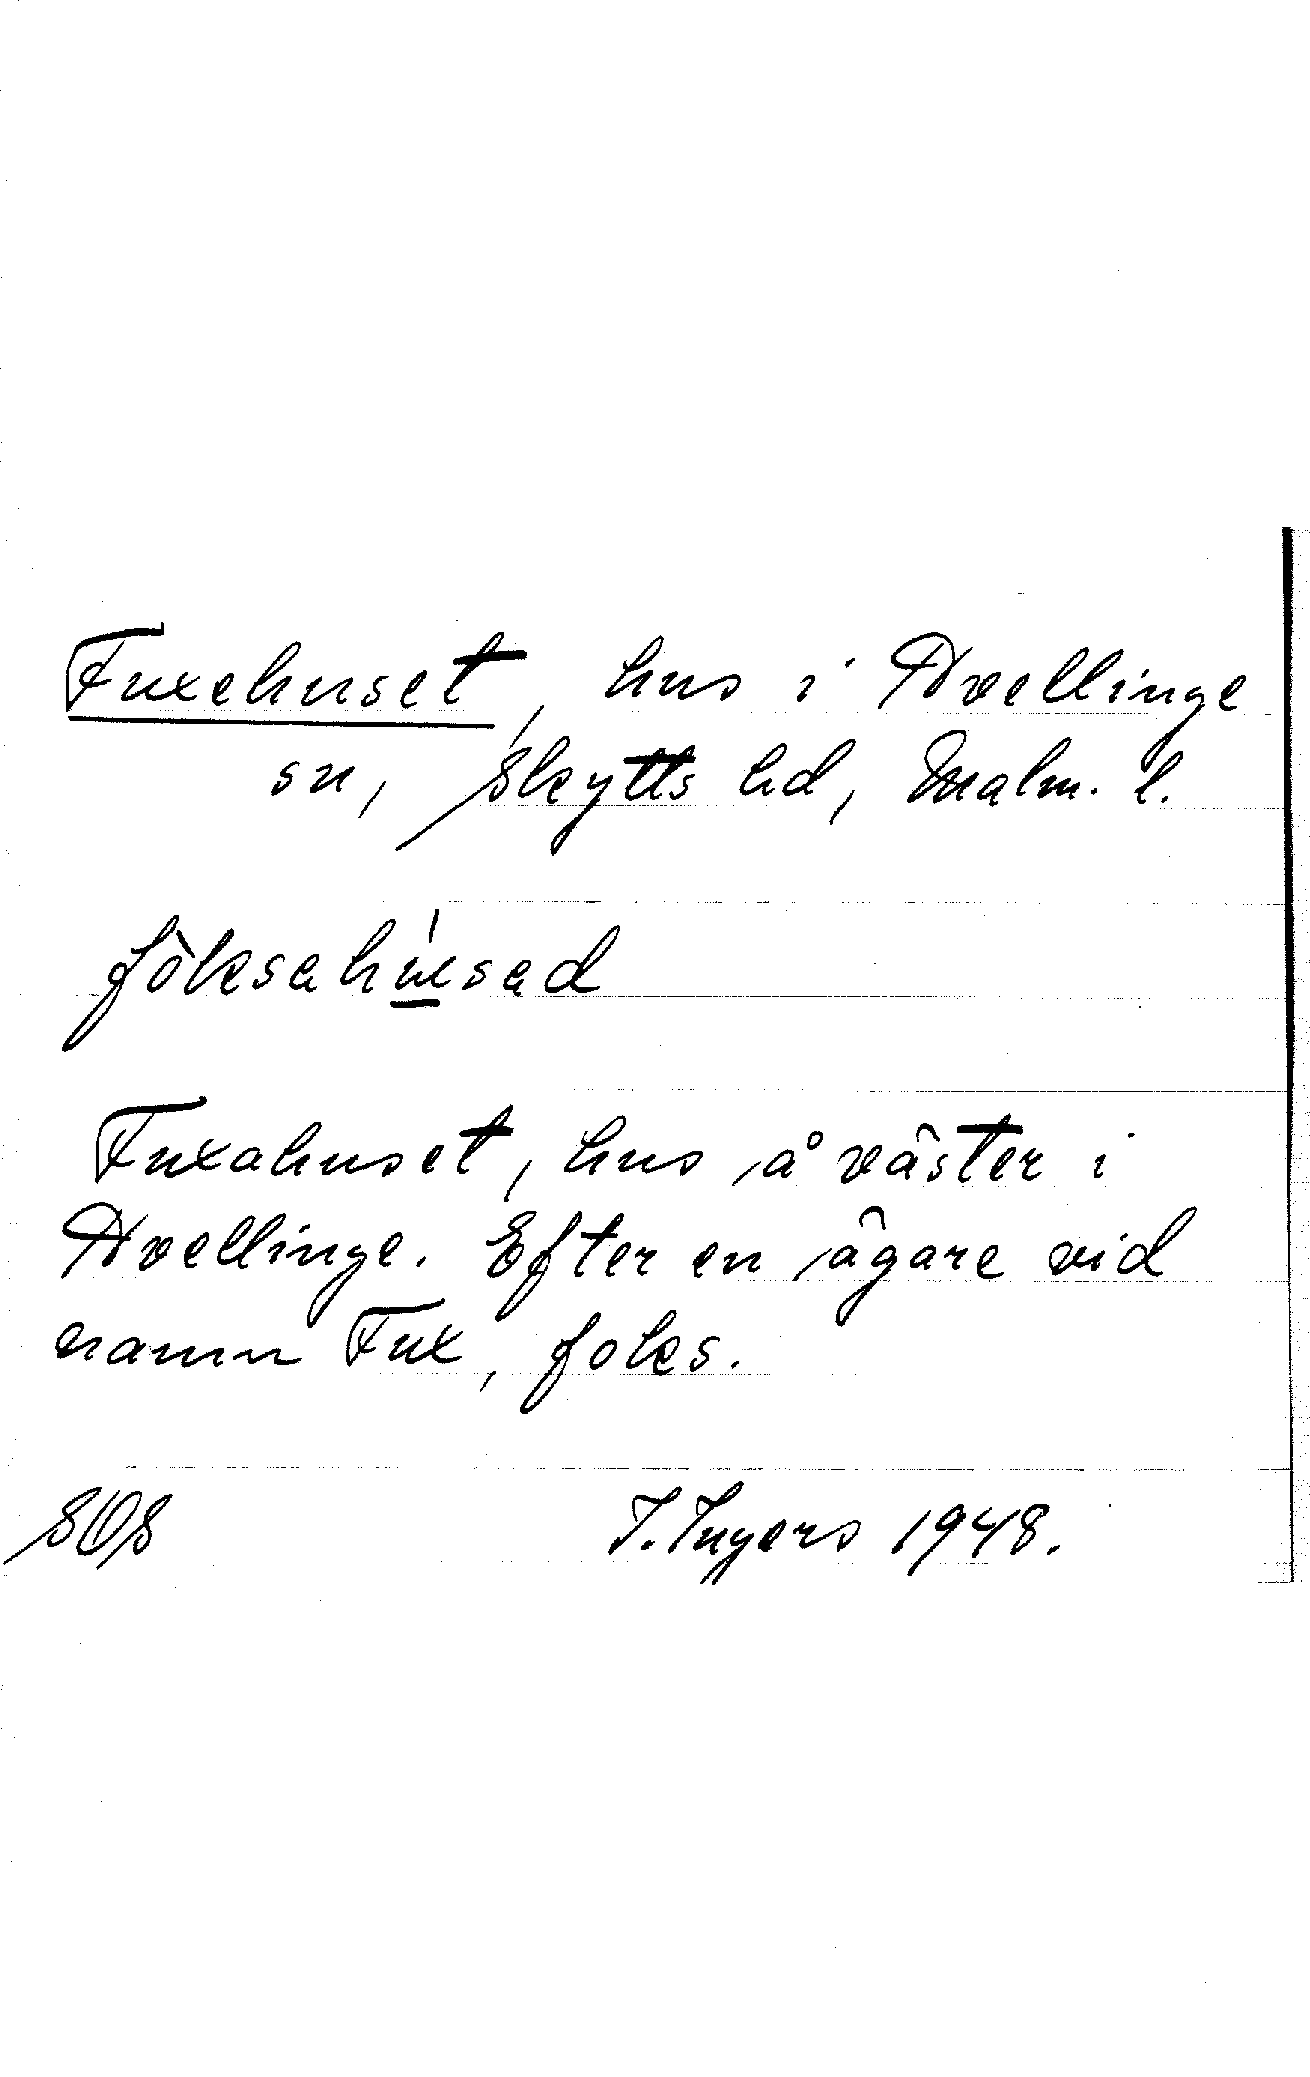 Fuxehuset, hus i Hvellinge
sn, Skytts hd, Malm. l.
fòksahúsad
Fuxahuset, hus å väster i
Hvellinge. Efter en ägare vid
namn Fux, foks.
SOS I. Ingers 1948.